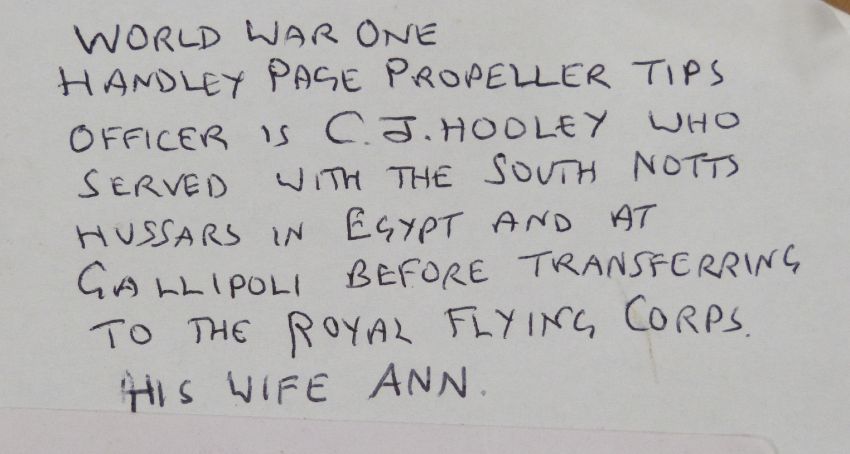 WORLD WAR ONE
HANDLEY PAGE PROPELLER TIPS
OFFICER IS C.J.HOOLEY WHO
SERVED WITH THE SOUTH NOTTS
HUSSARS IN EGYPT AND AT
GALLIPOLI BEFORE TRANSFERRING
TO THE ROYAL FLYING CORPS.
HIS WIFE ANN.